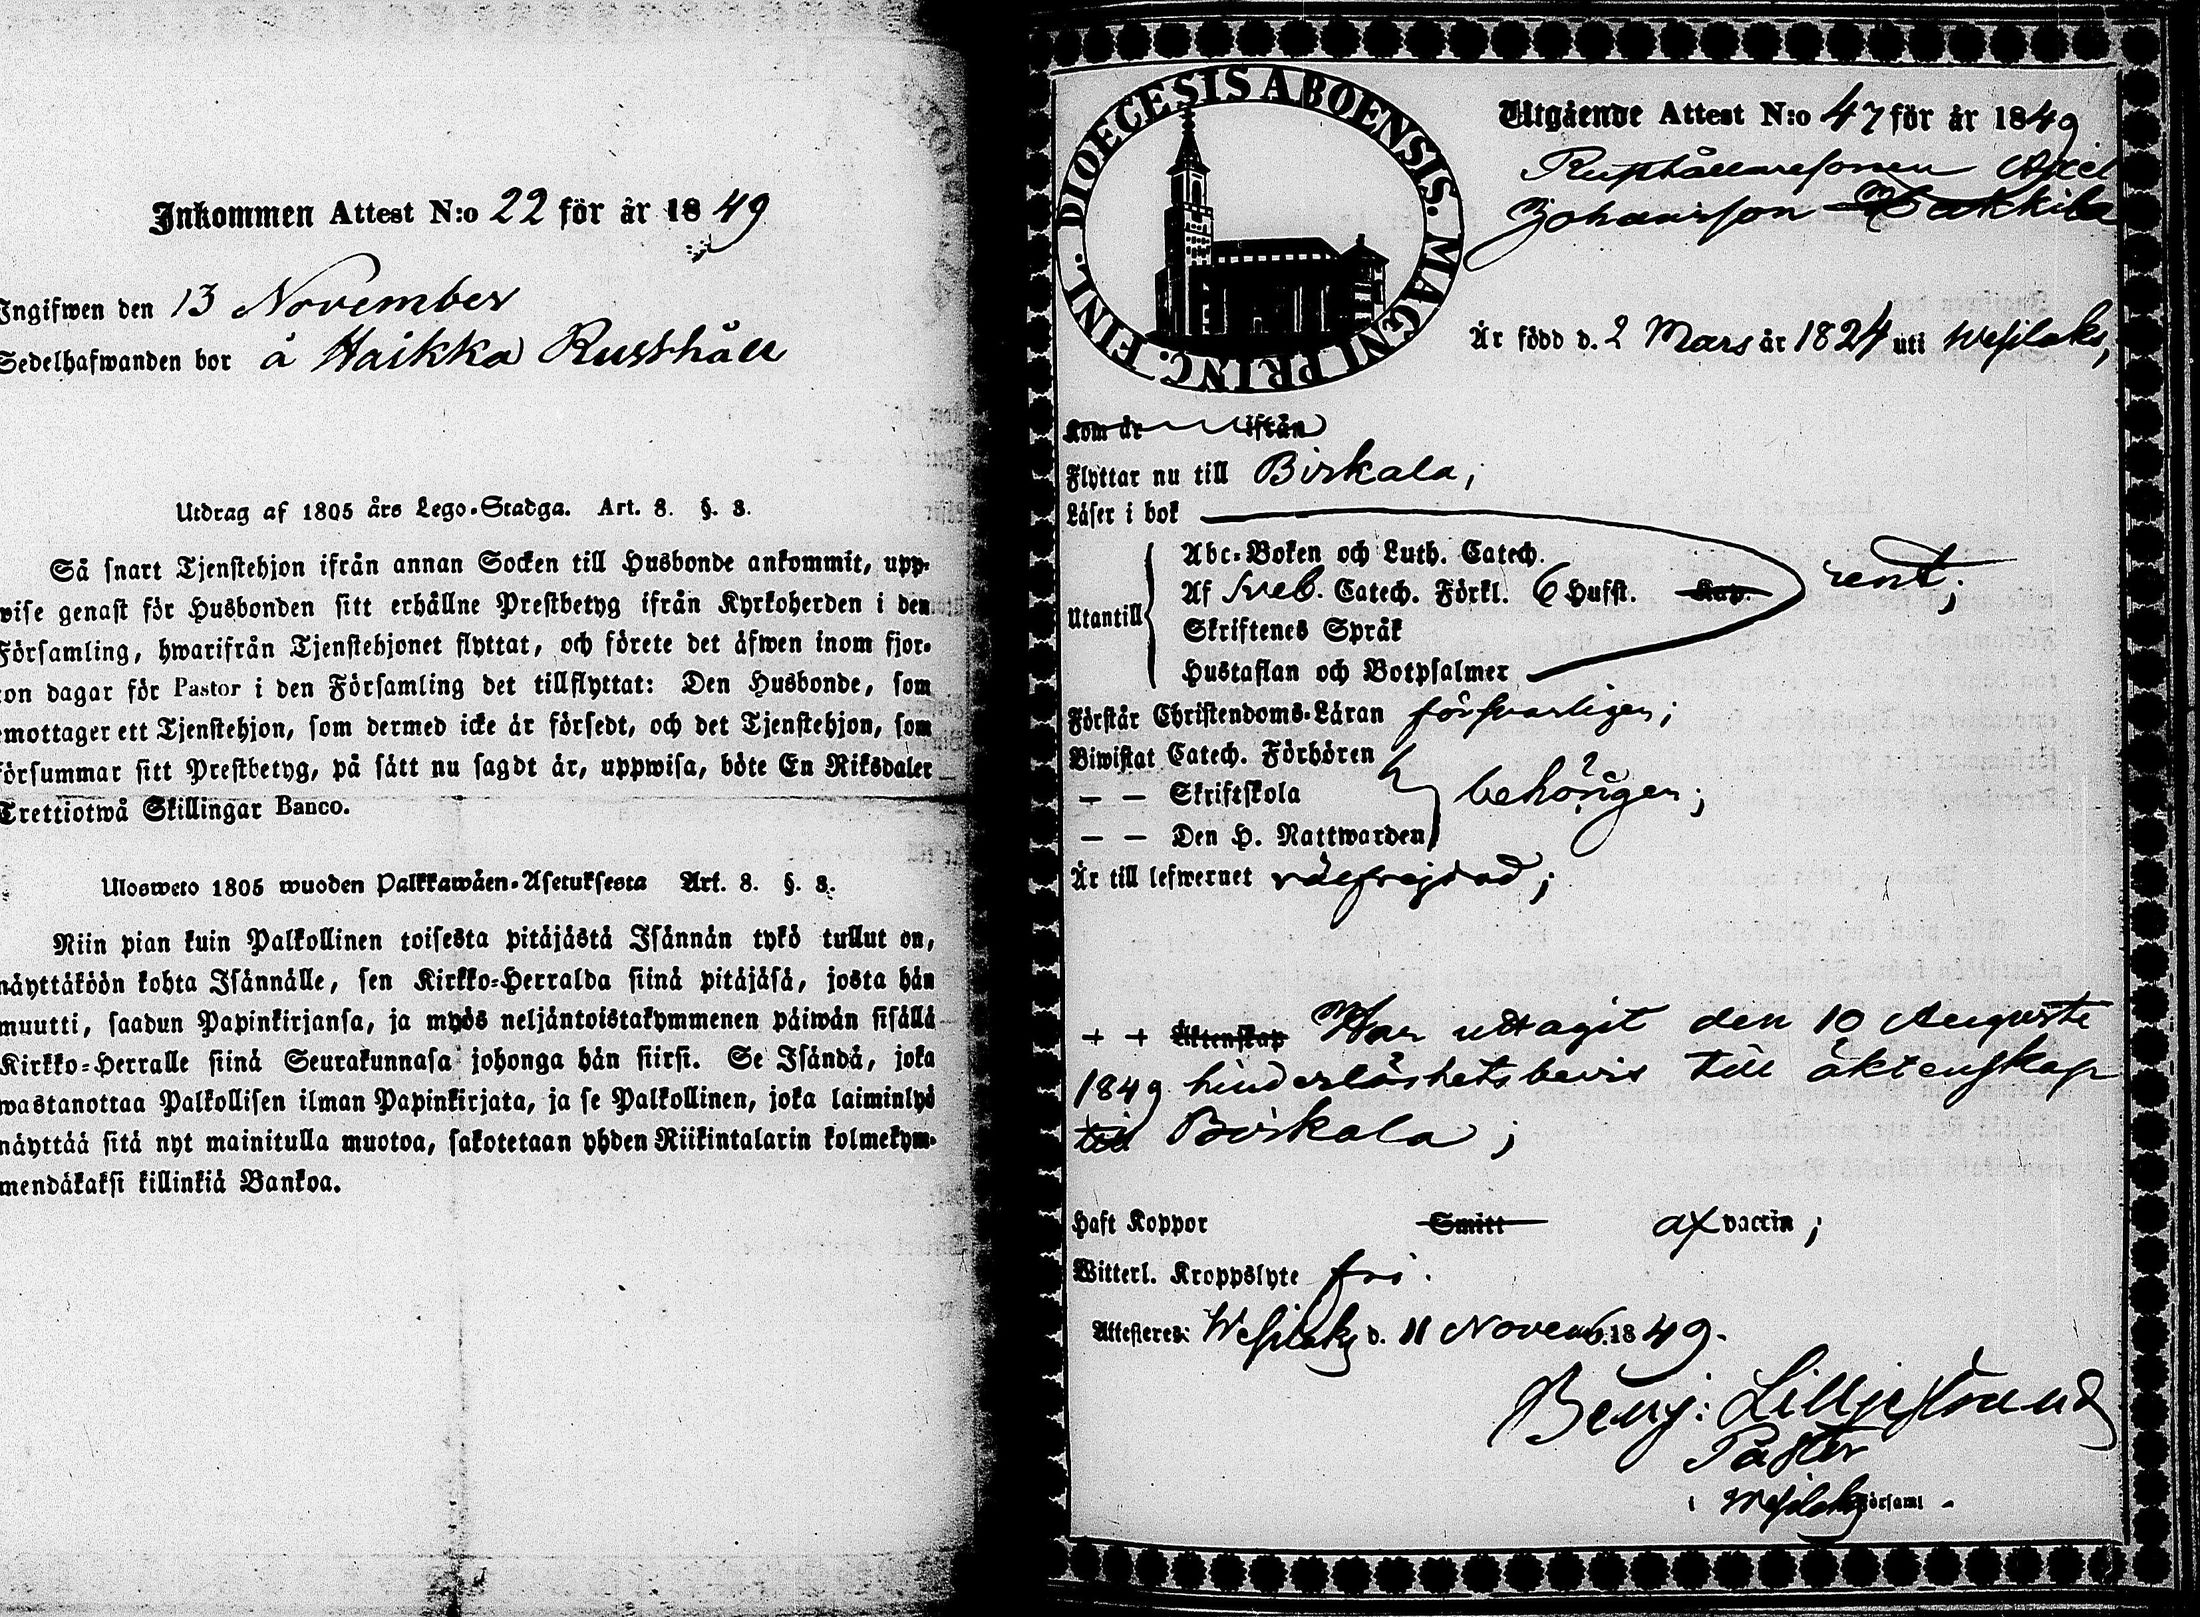 Inkommen Attest N:o 22 för år 1849
Ingifwen den 13 November
Sedelhafwanden bor å Haikka Rusthåll
Utdrag af 1805 års Lego-Stadga. Art. 8. §. 3.
Så snart Tjenstehjon ifrån annan Socken till Husbonde ankommit, upp-
wise genast för Husbonden sitt erhållne Prestbetyg ifrån Kyrkoherden i den
Församling, hwarifrån Tjenstehjonet flyttat, och förete det äfwen inom fjor-
ton dagar för Pastor i den Församling det tillflyttat: Den Husbonde, som
emottager ett Tjenstehjon, som dermed icke är försedt, och det Tjenstehjon, som
försummar sitt Prestbetyg, på sätt nu sagdt är, uppwisa, böte En Riksdaler
Trettiotwå Skillingar Banco.
Ulosweto 1805 wuoden Palkkawäen-Asetuksesta Art. 8. §. 3.
Niin pian kuin Palkollinen toisesta pitäjästä Isännän tykö tullut on,
näyttäköön kohta Isännälle, sen Kirkko-Herralda siinä pitäjäsä, josta hän
muutti, saadun Papinkirjansa, ja myös neljäntoistakymmenen päiwän sisällä
Kirkko-Herralle siinä Seurakunnasa johonga hän siirsi. Se Isändä, joka
wastanottaa Palkollisen ilman Papinkirjata, ja se Palkollinen, joka laiminlyö
näyttää sitä nyt mainitulla muotoa, sakotetaan yhden Riikintalarin kolmekym-
mendäkaksi killinkiä Bankoa.
DIOECESIS ABOENSIS. MAGNI PRINC. FINL.
Utgående Attest N:o 47 för år 1849
Rusthållaresonen Axel
Johansson Makkila
Är född d. 2 Mars år 1824 uti Wesilaks,
Kom år ifrån
Flyttar nu till Birkala;
Läser i bok
Utantill
Abc-Boken och Luth. Catech.
Af Sveb. Catech. Förkl. 6 Hufst. Kap.
Skriftenes Språk
Hustaflan och Botpsalmer
rent;
Förstår Christendoms-Läran försvarligen;
Biwistat Catech. Förhören
— — Skriftskola
— — Den H. Nattwarden
behörigen;
Är till lefwernet välfrejdad;
+ + Äktenskap Har uttagit den 10 Auguste
1849 hinderlöshetsbevis till äktenskap
till Birkala;
Haft Koppor Smitt af vaccin;
Witterl. Kroppslyte fri.
Attesteres: Wesilaks d. 11 Novemb. 1849.
Benj: Lilljestrand
Pastor
i Wesilaks Församl